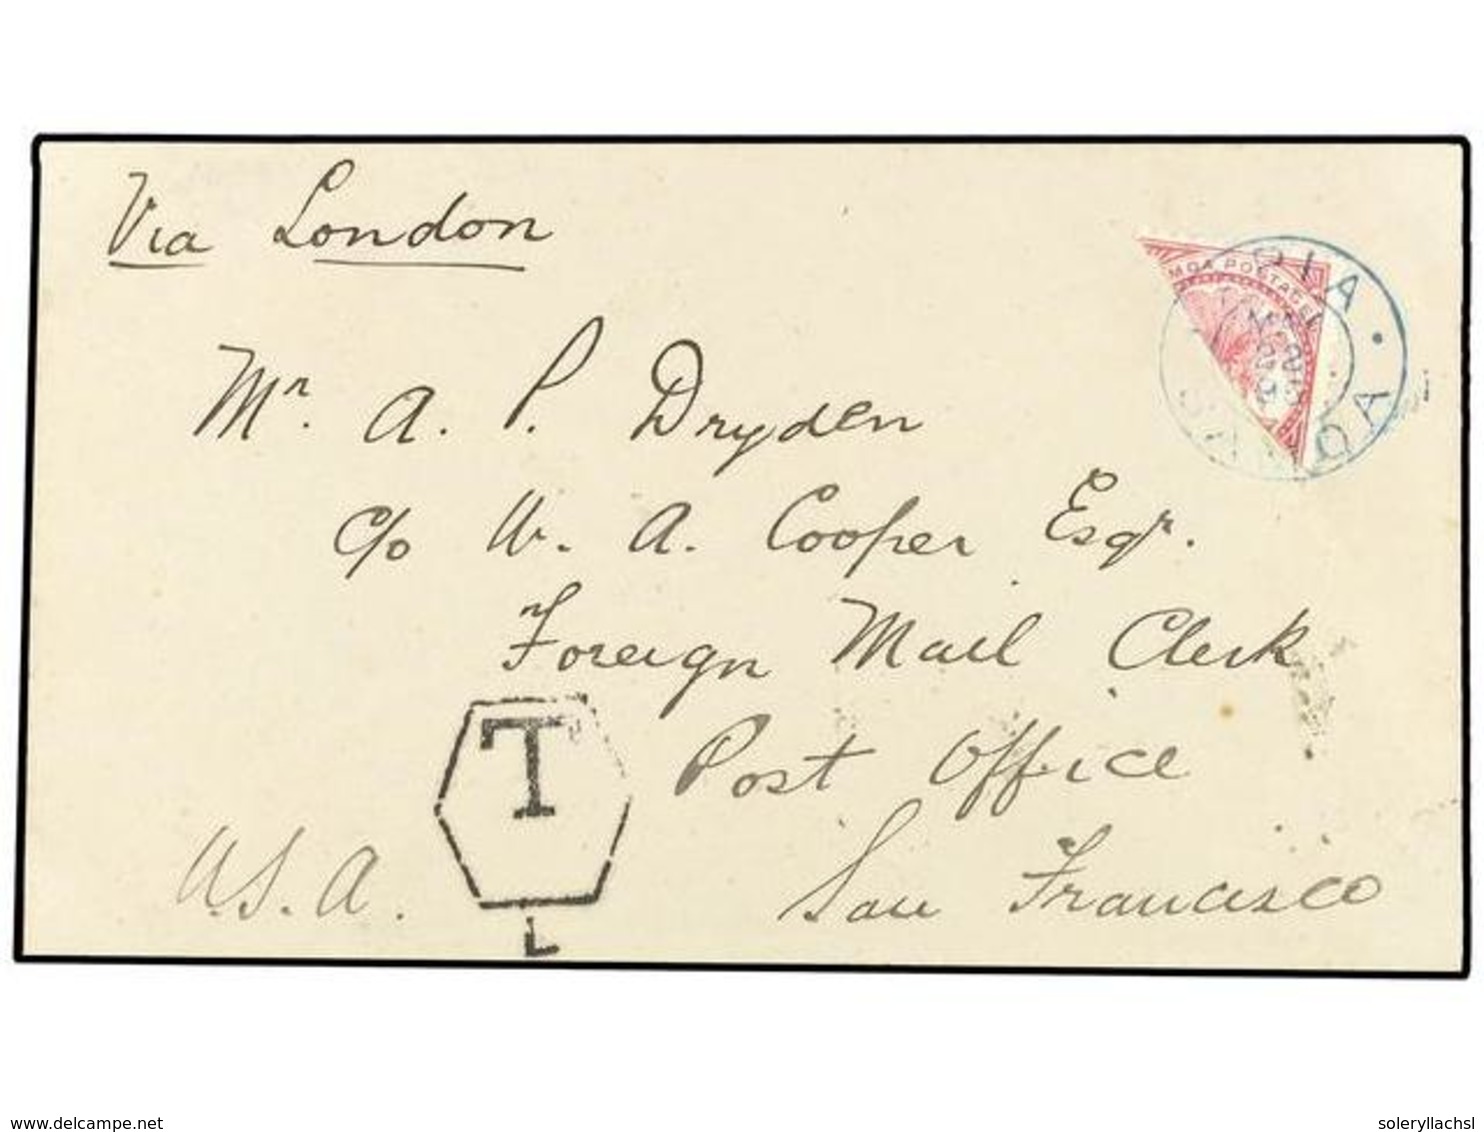 Via London
MOA POSTAGE
APIA
SAMOA
Mr. A. P. Dryden
c/o W. A. Cooper Esqr.
Foreign Mail Clerk
T
Post Office
U.S.A.
San Francisco
L
www.delcampe.net
soleryllachsl